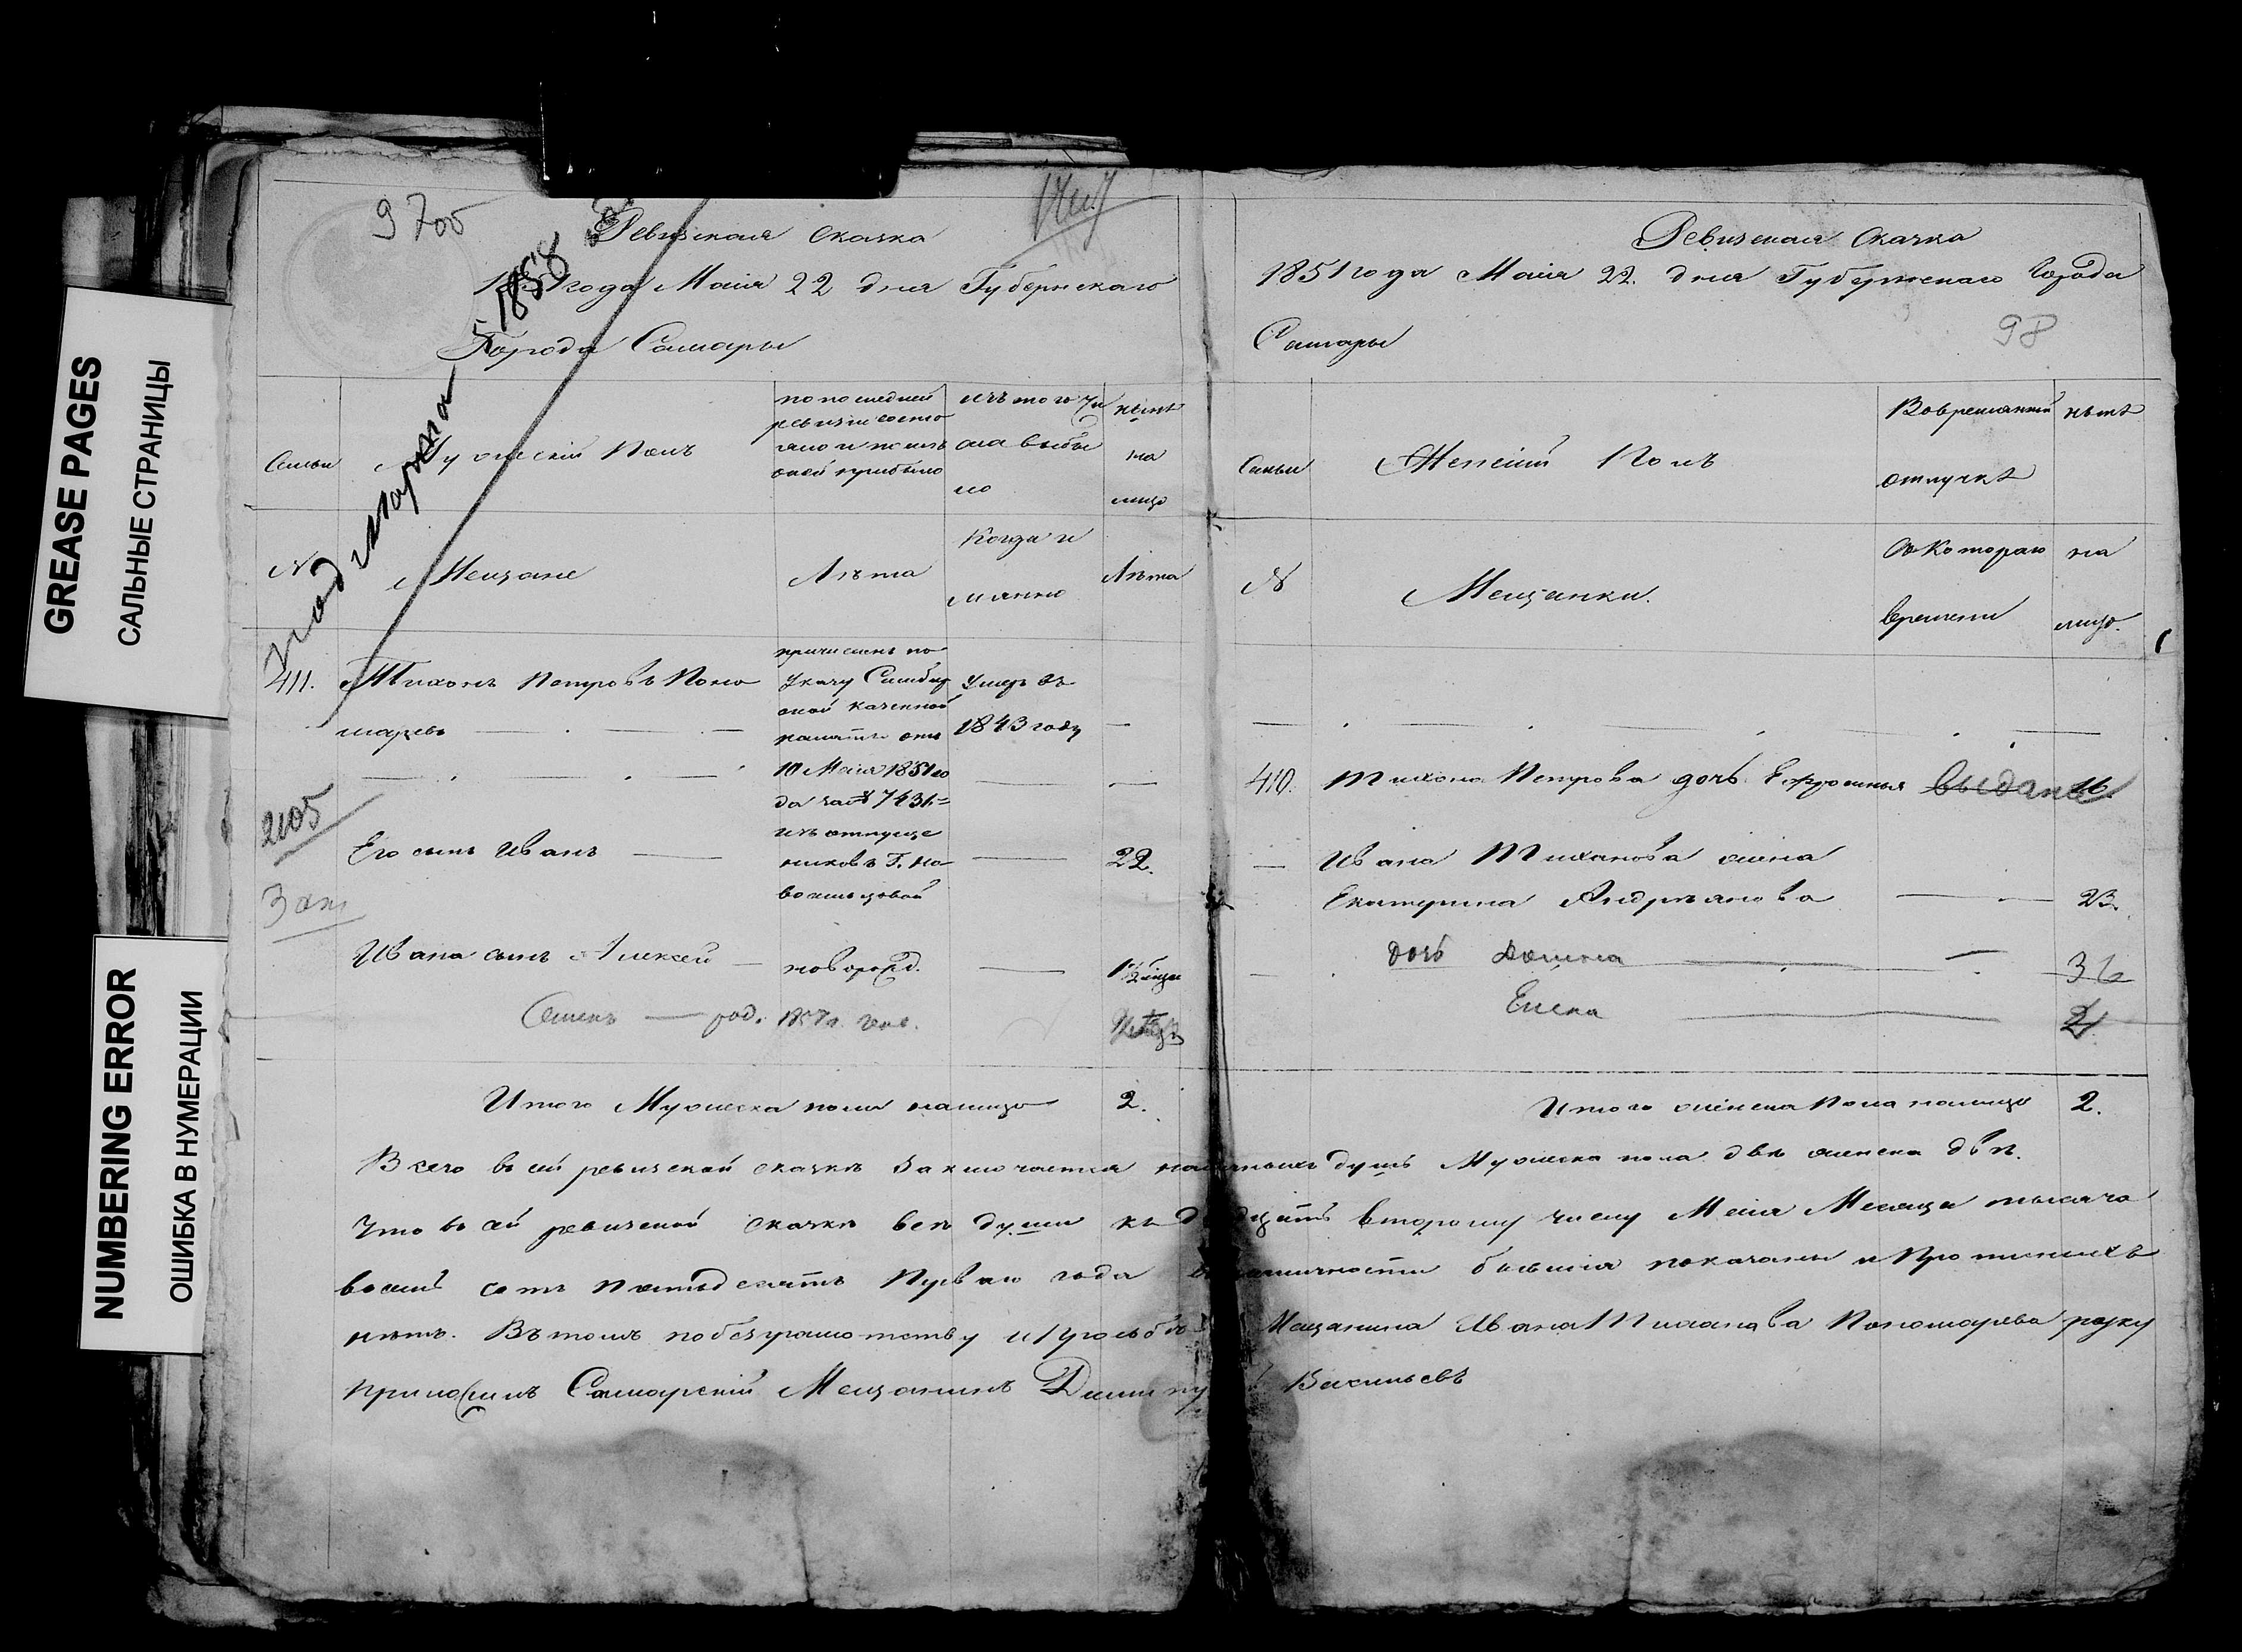 GREASE PAGES
САЛЬНЫЕ СТРАНИЦЫ
NUMBERING ERROR
ОШИБКА В НУМЕРАЦИИ
Ревизская Сказка
1851 года Маия 22 дня Губернскаго
Города Самары
под марта 1858
Семьи
Мужеский Полъ
по последней
ревизии состо
яло и после
оной прибыло
изъ того чи
сла выбы
ло
нынѣ
на
лицо
№
Мещане
Лѣта
Когда и
имянно
Лѣта
411.
Тихонъ Петровъ Поно
маревъ
причисленъ по
Указу Симбир
ской казенной
палаты отъ
10 Маия 1851 го
да за № 7431=
изъ отпуще
никовъ Г. Но
восильцовой
умеръ въ
1843 году
2105
Его сынъ Иванъ
22.
Ивана сынъ Алексей
новорожд.
Семенъ — род.
Итого Мужеска пола налицо 2.
Ревизская Сказка
1851 года Маия 22. дня Губернскаго Города
Самары
98
Семьи
Женский Полъ
Во временной
отлучкѣ
нынѣ
№
Мещанки.
Съ Котораго
времени
на
лицо.
410. Тихона Петрова дочь Ефросинья выдана 16.
Ивана Тиханова жена
Екатерина Андреянова 23.
дочь
Елена 2
Итого женска Пола налицо 2.
Всего въ сей ревизской сказкѣ Заключается наличныхъ душъ Мужеска пола двѣ женска двѣ.
Что въ сей ревизской сказкѣ всѣ души къ двадцать второму числу Маия Месяца тысяча
восемь сотъ пятьдесятъ Перваго года въ наличности бывшия показаны и Прописныхъ
нѣтъ. Въ томъ по безграмотству и прозьбѣ Мещанина Ивана Тиханова Пономарева руку
приложилъ Самарский Мещанинъ Дмитрий Васильевъ